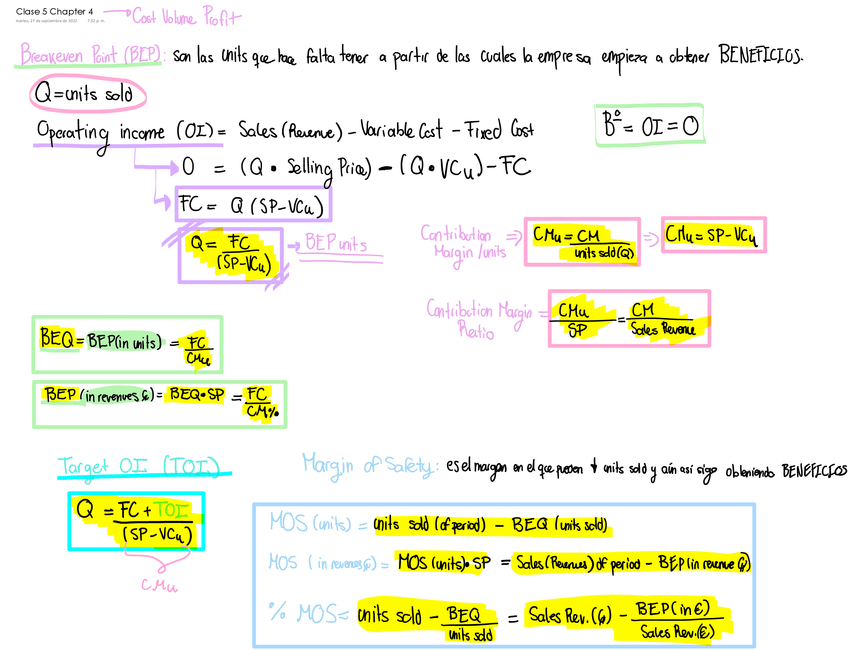 Clase 5 Chapter 4 → Cost Volume Profit
martes, 27 de septiembre de 2022 7:53 p. m.
Breakeven Point (BEP): son las units que hace falta tener a partir de las cuales la empresa empieza a obtener BENEFICIOS.
Q = units sold
Operating income (OI) = Sales (Revenue) - Variable Cost - Fixed Cost
Bº = OI = 0
0 = (Q • Selling Price) - (Q • VCu) - FC
FC = Q (SP-VCu)
Q = FC / (SP-VCu) → BEP units
Contribution Margin/units ⇒ CMu = CM / units sold (Q) ⇒ CMu = SP-VCu
Contribution Margin Ratio = CMu / SP = CM / Sales Revenue
BEQ = BEP (in units) = FC / CMu
BEP (in revenues €) = BEQ • SP = FC / CM%
Target OI (TOI)
Q = FC + TOI / (SP-VCu)
CMu
Margin of Safety: es el margen en el que pueden ↓ units sold y aún así sigo obteniendo BENEFICIOS
MOS (units) = units sold (of period) - BEQ (units sold)
MOS (in revenues €) = MOS (units) • SP = Sales (Revenues) of period - BEP (in revenue €)
% MOS = units sold - BEQ / units sold = Sales Rev. (€) - BEP (in €) / Sales Rev. (€)